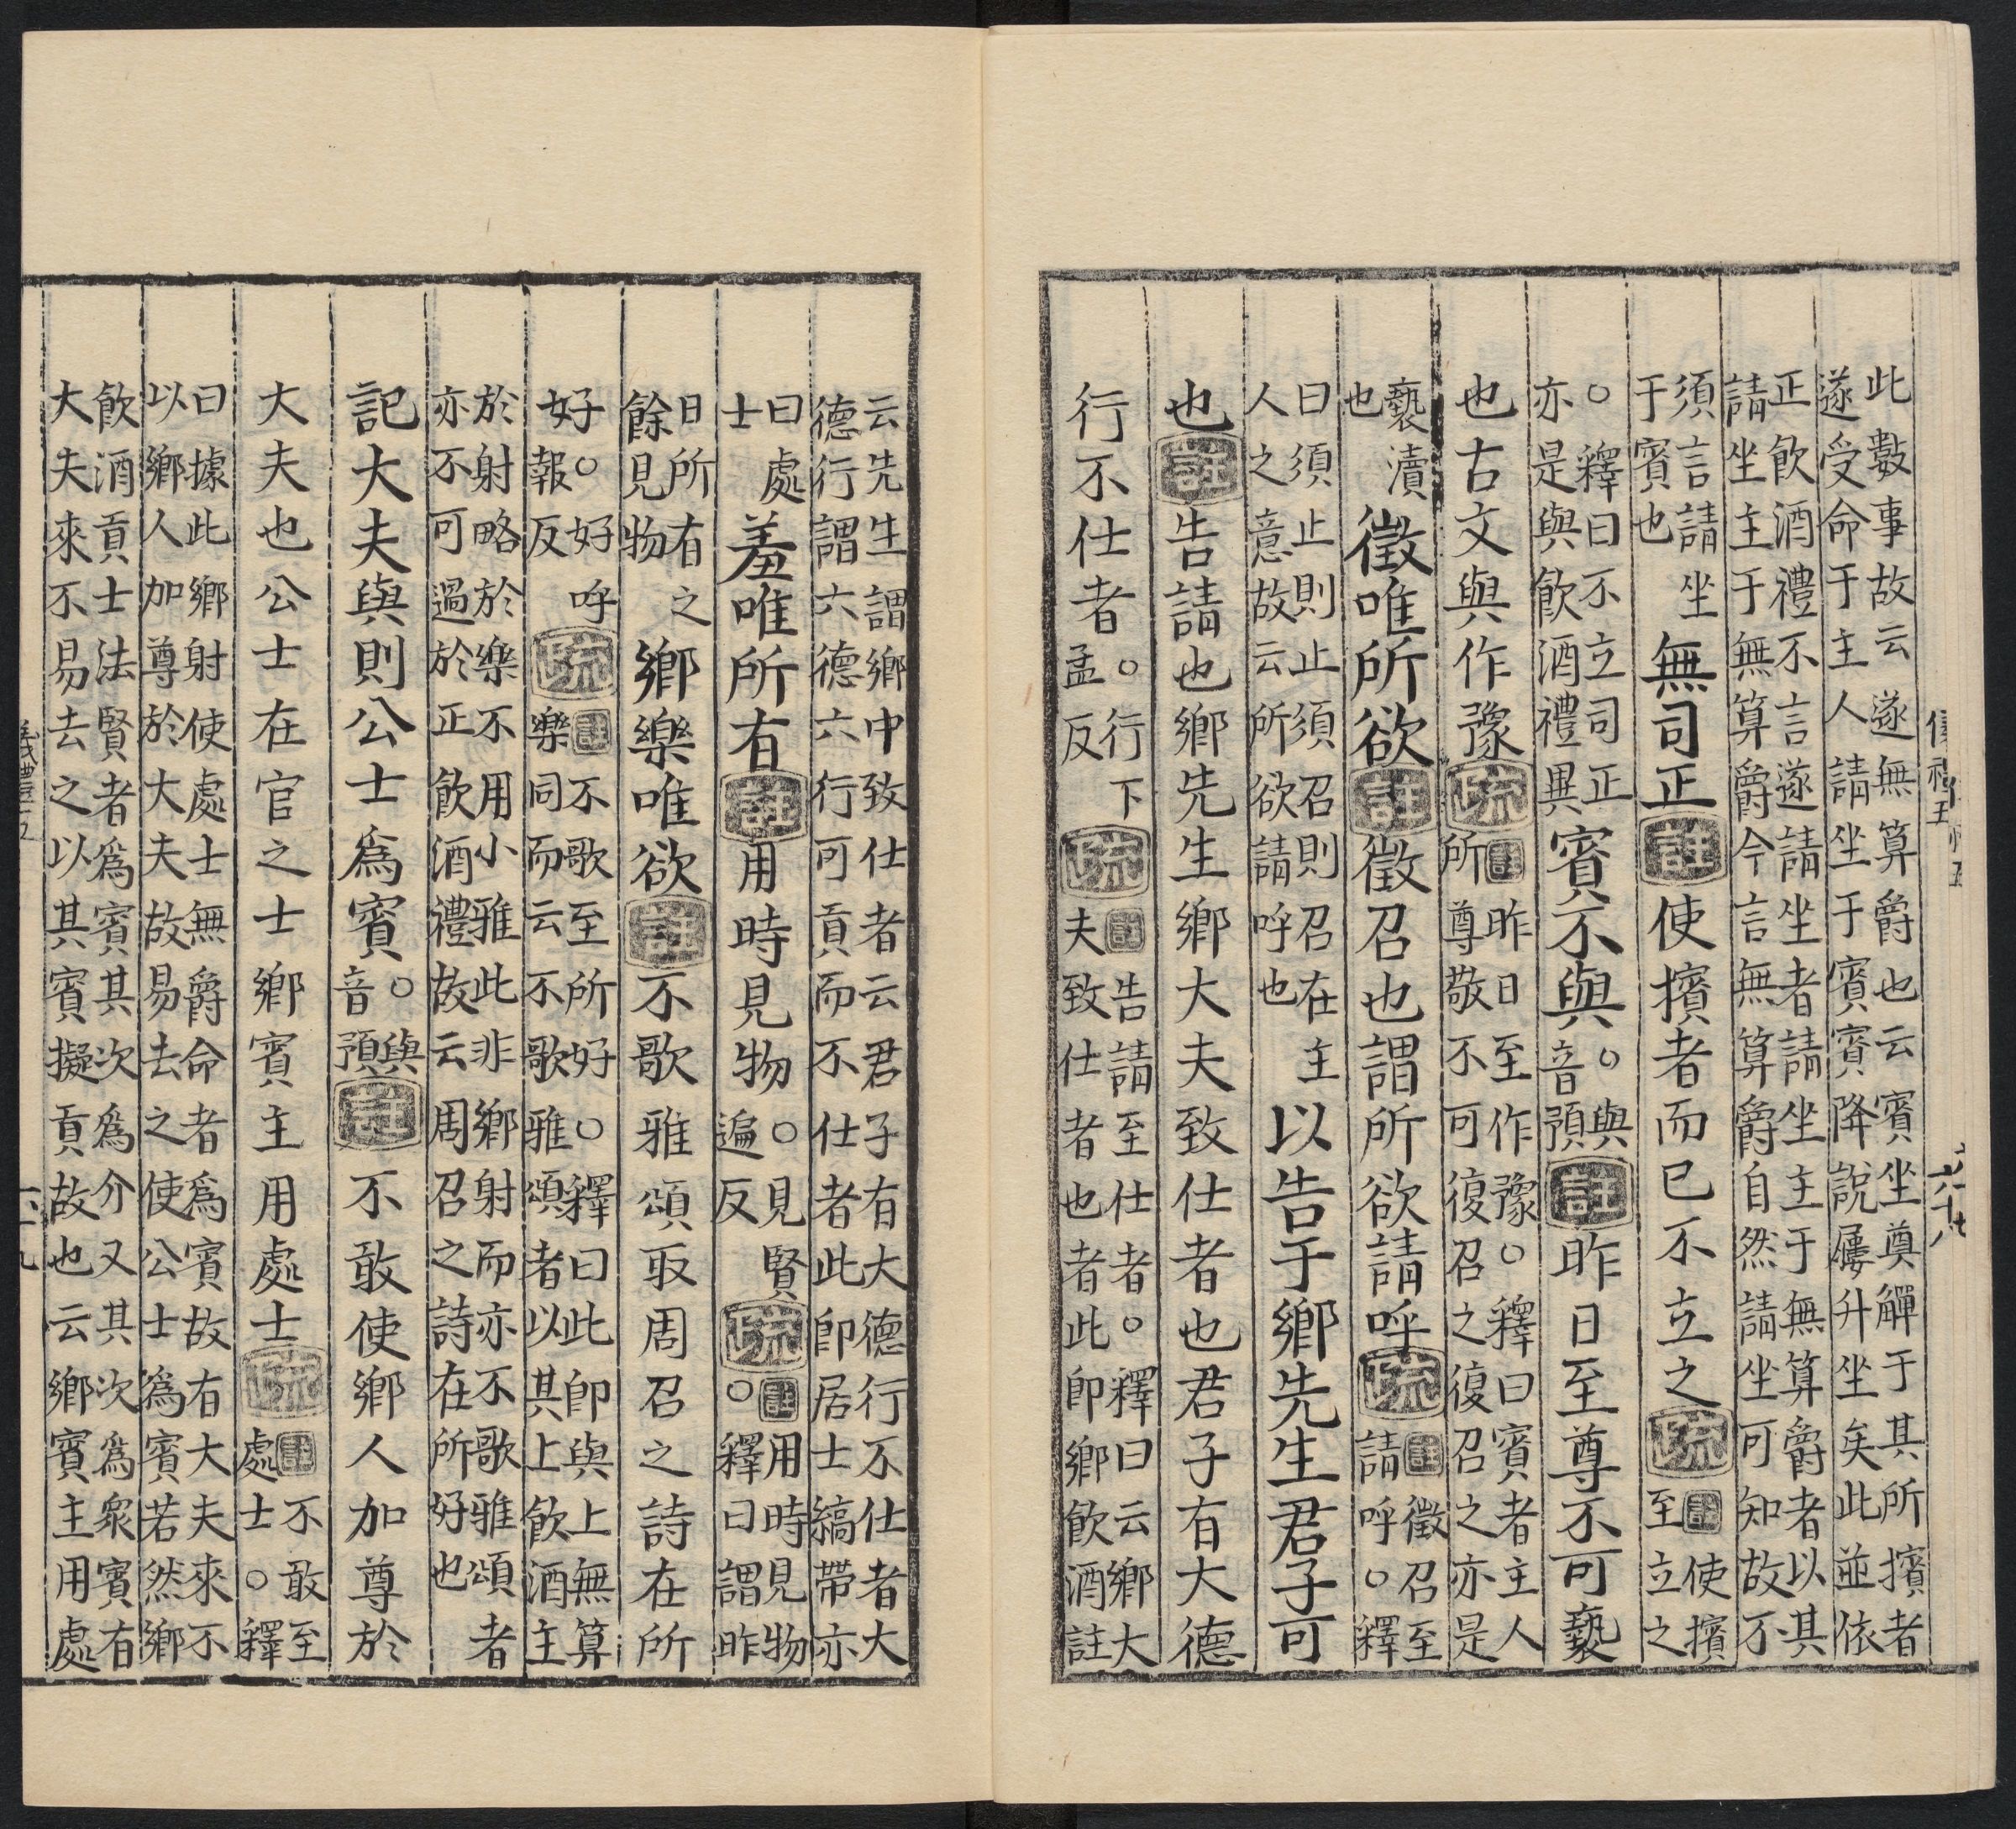 此數事故云遂無算爵也云賓坐奠觶于其所擯者
遂受命于主人請坐于賓賓降說屨升坐矣此並依
正飲酒禮不言遂請坐者請坐主于無算爵者以其
請坐主于無算爵今言無算爵自然請坐可知故不
須言請坐
于賓也
無司正註使擯者而已不立之疏
註使擯
至立之
○釋曰不立司正
亦是與飲酒禮異
賓不與
○與
音預
註昨日至尊不可褻
也古文與作豫疏
註昨日至作豫○釋曰賓者主人
所尊敬不可復召之復召之亦是
褻瀆
也
徵唯所欲註徵召也謂所欲請呼疏
註徵召至
請呼○釋
曰須止則止須召則召在主
人之意故云所欲請呼也
以告于鄉先生君子可
也註告請也鄉先生鄉大夫致仕者也君子有大德
行不仕者
○行下
孟反
疏
註告請至仕者○釋曰云鄉大
夫致仕者也者此即鄉飲酒註
云先生謂鄉中致仕者云君子有大德行不仕者大
德行謂六德六行可貢而不仕者此即居士縞帶亦
曰處
士
羞唯所有註用時見物
○見賢
遍反
疏
註用時見物
○釋曰謂昨
日所有之
餘見物
鄉樂唯欲註不歌雅頌取周召之詩在所
好
○好呼
報反
疏
註不歌至所好○釋曰此即與上無算
樂同而云不歌雅頌者以其上飲酒主
於射略於樂不用小雅此非鄉射而亦不歌雅頌者
亦不可過於正飲酒禮故云周召之詩在所好也
記大夫與則公士為賓
○與
音預
註不敢使鄉人加尊於
大夫也公士在官之士鄉賓主用處士疏
註不敢至
處士○釋
曰據此鄉射使處士無爵命者為賓故有大夫來不
以鄉人加尊於大夫故易去之使公士為賓若然鄉
飲酒貢士法賢者為賓其次為介又其次為眾賓有
大夫來不易去之以其賓擬貢故也云鄉賓主用處